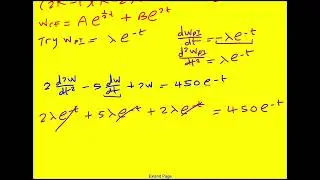 W_CF = Ae^{½t} + Be^{2t}
Try W_PI = λe^{-t}
dW_PI/dt = -λe^{-t}
d²W_PI/dt² = λe^{-t}
2 d²w/dt² - 5 dw/dt + 2w = 450e^{-t}
2λe^{-t} + 5λe^{-t} + 2λe^{-t} = 450e^{-t}
Extend Page